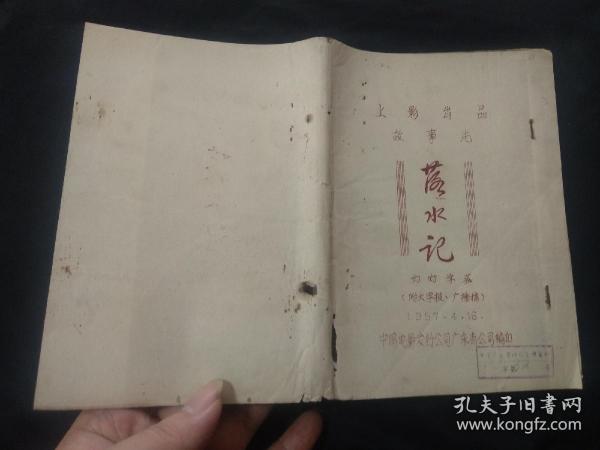 上影出品
故事片
落水记
幻灯字幕
(附大字报、广播稿)
1957.4.16.
中国电影发行公司广东省公司编印
孔夫子旧书网
www.kongfz.com